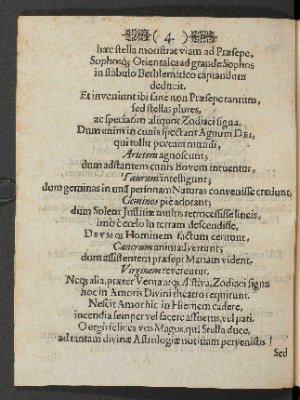 ( 4 )
hæc stella monstrat viam ad Præsepe,
Sophosq; Orientales ad grande Sophos
in stabulo Bethlemitico capiandum
deducit.
Et inveniunt ibi sane non Præsepe tantum,
sed stellas plures,
ac speciatim aliquot Zodiaci signa.
Dum enim in cunis spectant Agnum DEI,
qui tollit peccata mundi,
Arietem agnoscunt;
dum adstantem cunis Bovem intuentur,
Taurum intelligunt;
dum geminas in unâ personam Naturas convenisse credunt,
Geminos piè adorant;
dum Solem Justitiæ multis retrocessisse lineis,
imò è cœlo in terram descendisse,
DEUMQ; Hominem factum cernunt,
Cancrum animadvertunt;
dum assistentem præsepi Mariam vident,
Virginem reverentur.
Neq; alia, præter Verna atq; Æstiva, Zodiaci signa
hoc in Amoris Divini theatro requirunt.
Nescit Amor hic in Hiemem cadere,
incendia semper vel facere assuetus, vel pati.
O ergò felices vos Magos, qui Stella duce,
ad tantam divinæ Astrologiæ notitiam pervenistis!
Sed